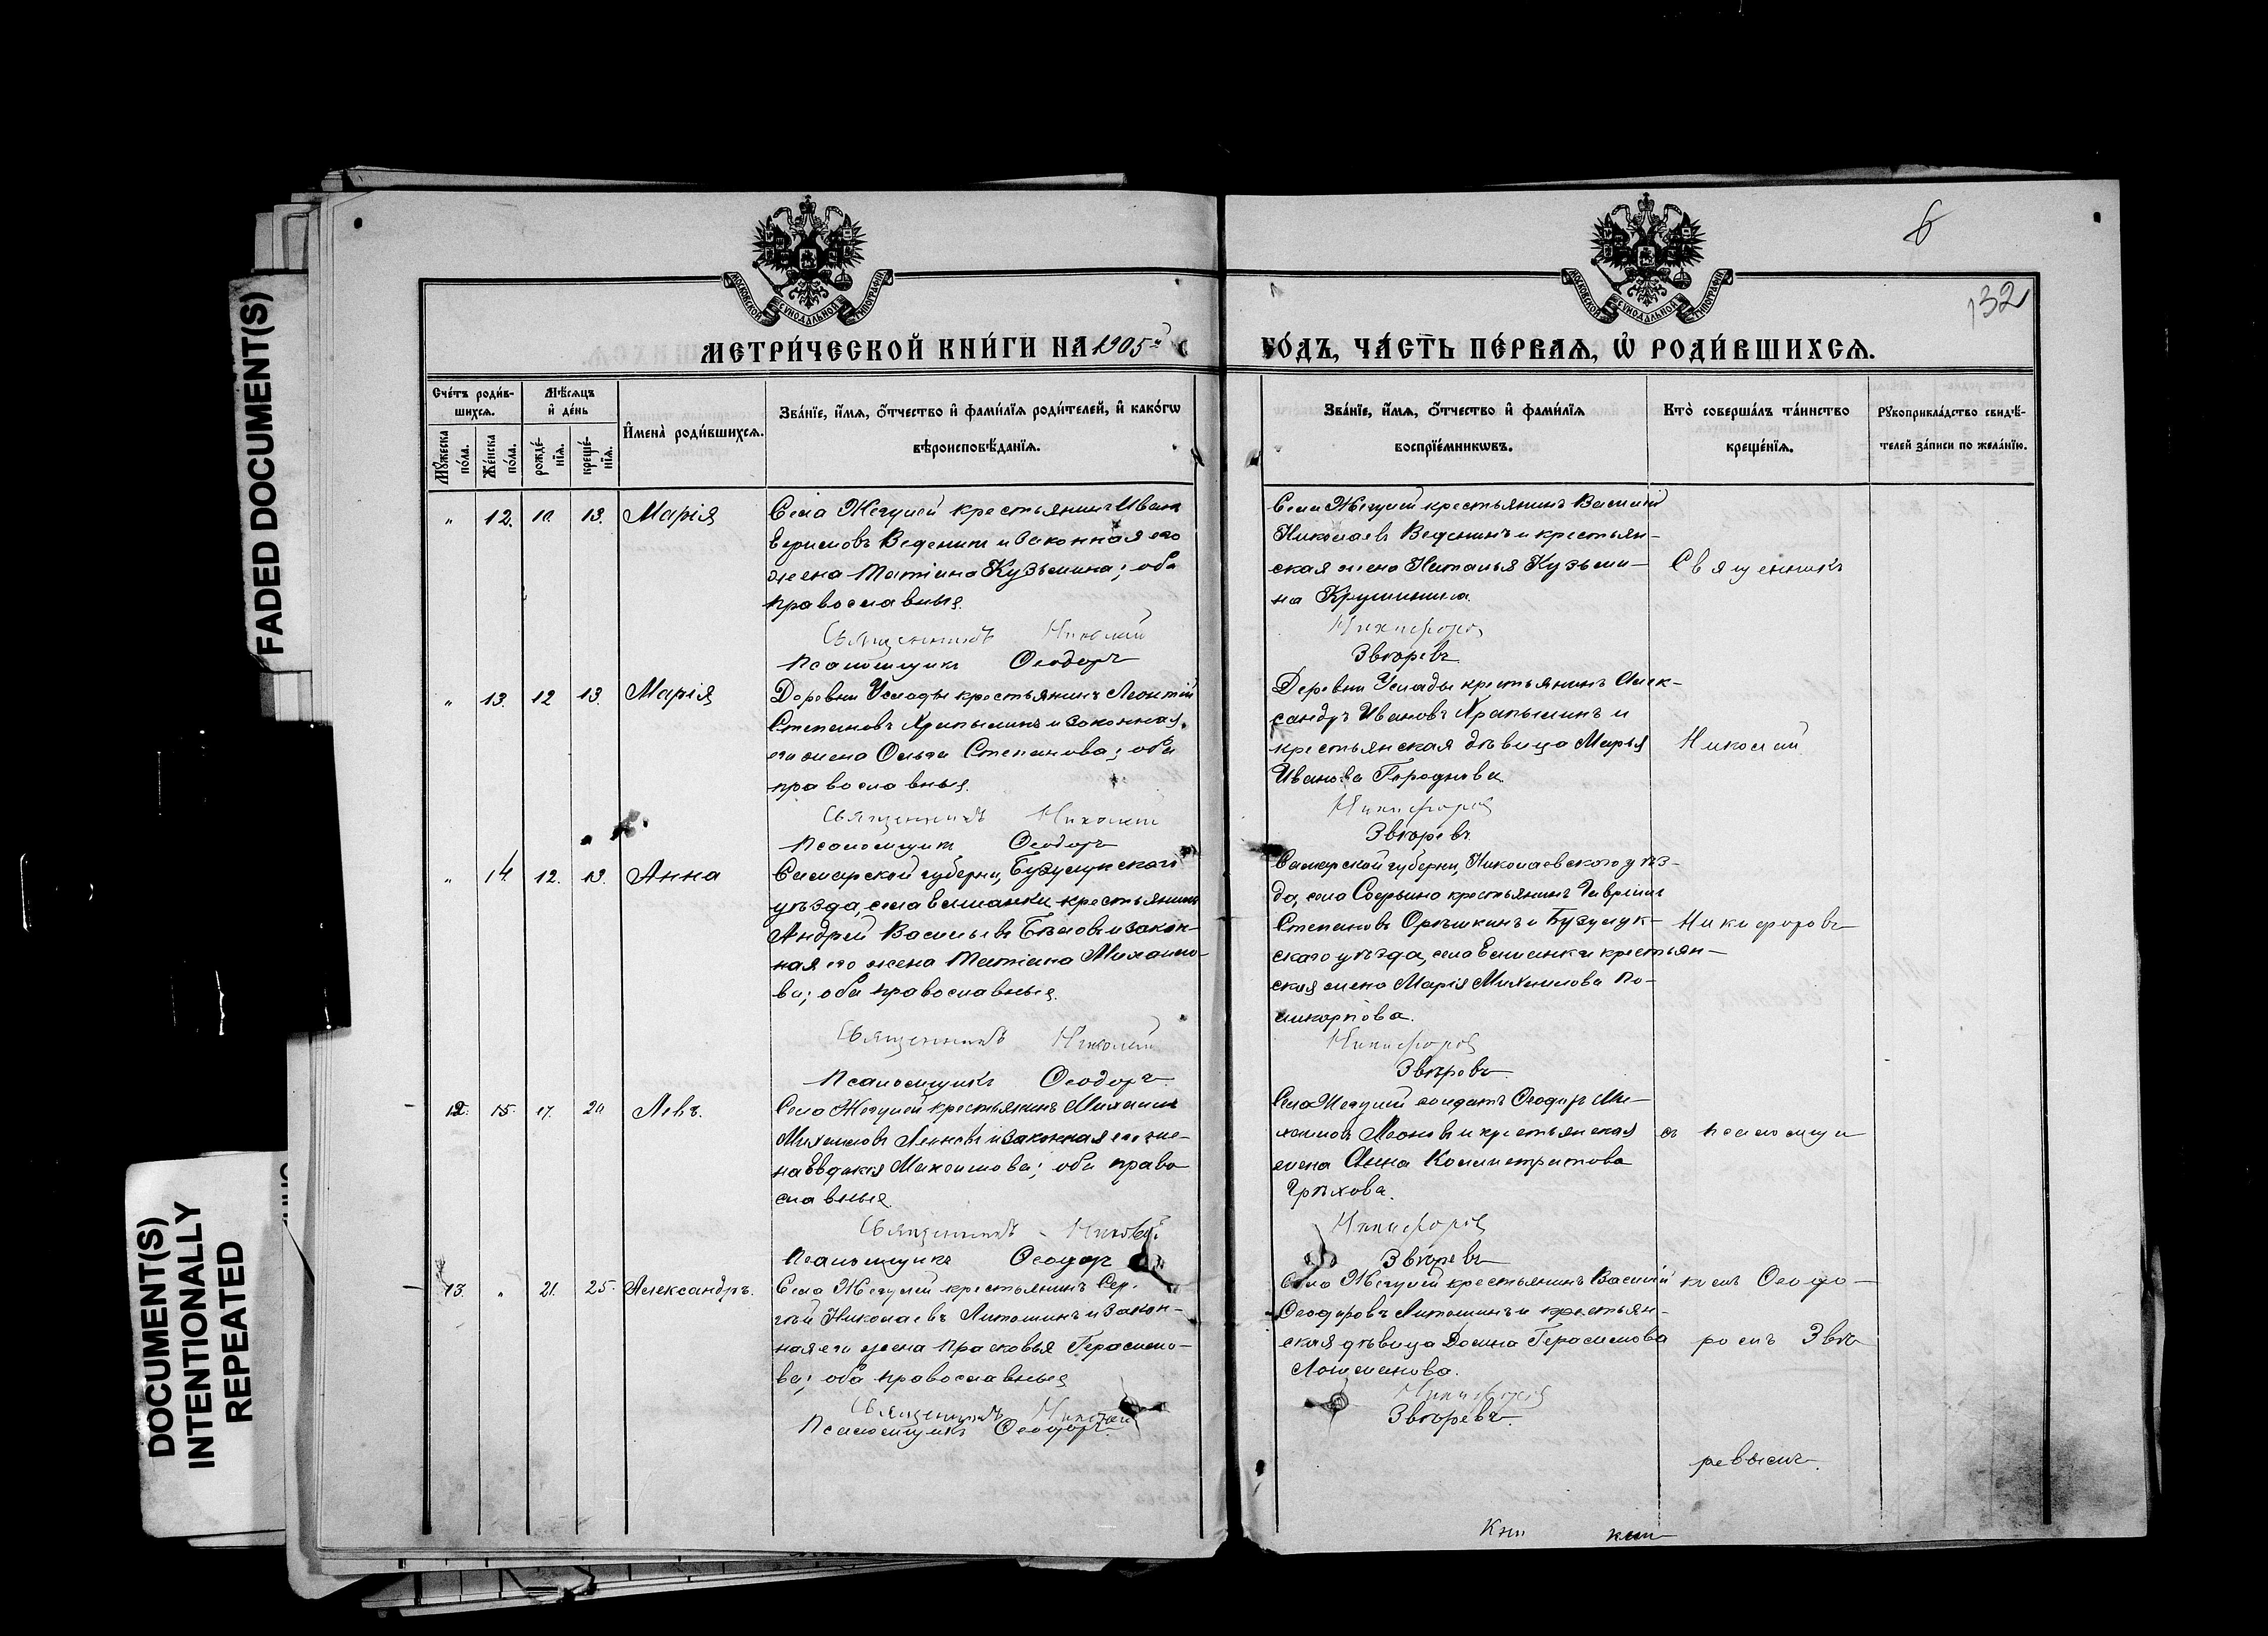 FADED DOCUMENT(S)
DOCUMENT(S)
INTENTIONALLY
REPEATED
6
132
МОСКОВСКОЙ СѴНОДАЛЬНОЙ ТИПОГРАФІИ
МОСКОВСКОЙ СѴНОДАЛЬНОЙ ТИПОГРАФІИ
МЕТРИ́ЧЕСКОЙ КНИ́ГИ НА 1905й ГО́ДЪ, ЧА́СТЬ ПЕ́РВАѦ, Ѡ РОДИ́ВШИХСѦ.
Сче́тъ роди́в-
шихсѧ.
Мѣ́сѧцъ
и҆ де́нь
Мꙋ́жеска
по́ла.
Же́нска
по́ла.
рожде́-
нїѧ.
креще́-
нїѧ.
И҆мена̀ роди́вшихсѧ.
Зва́нїе, и҆́мѧ, ѻ҆́тчество и҆ фами́лїѧ роди́телей, и҆ како́гѡ
вѣроисповѣ́данїѧ.
Зва́нїе, и҆́мѧ, ѻ҆́тчество и҆ фами́лїѧ
воспрїе́мникѡвъ.
Кто̀ соверша́лъ та́инство
креще́нїѧ.
Рꙋкоприкла́дство свидѣ́-
телей за́писи по жела́нїю.
„ 12. 10. 13. Марія
Села Жегулей крестьянинъ Иванъ
Ефимовъ Веденинъ и законная его
жена Татіана Кузьмина; оба
православные.
Священникъ Николай
Псаломщикъ Ѳеодоръ
Села Жегулей крестьянинъ Василій
Николаевъ Веденинъ и крестьян-
ская жена Наталья Кузьми-
на Крушинина.
Никифоровъ
Звѣревъ
Священникъ
„ 13. 12 13. Марія
Деревни Услады крестьянинъ Леонтій
Степановъ Храпылинъ и законная
его жена Ольга Степанова; оба
православные.
Священникъ Николай
Псаломщикъ Ѳеодоръ
Деревни Услады крестьянинъ Алек-
сандръ Ивановъ Храпылинъ и
крестьянская дѣвица Марья
Иванова Городнова.
Никифоровъ
Звѣревъ
Николай
„ 14. 12. 13. Анна
Самарской губерніи, Бузулукскаго
уѣзда, села Елшанки крестьянинъ
Андрей Васильевъ Бѣловъ и закон-
ная его жена Татіана Михаило-
ва; оба православные.
Священникъ Николай
Псаломщикъ Ѳеодоръ
Самарской губерніи, Николаевского уѣз-
да, села Софьино крестьянинъ Гавріилъ
Степановъ Орѣшкинъ и Бузулук-
скаго уѣзда, села Елшанки крестьян-
ская жена Марія Михаилова По-
ликарпова.
Никифоровъ
Звѣревъ
Никифоровъ
12. 15. 17. 20 Левъ.
Села Жегулей крестьянинъ Михаилъ
Михаиловъ Леоновъ и законная его же-
на Евдокія Михаилова; оба право
славные
Священникъ Николай
Псаломщикъ Ѳеодоръ
Села Жегулей солдатъ Ѳеодоръ Ми-
хаиловъ Леоновъ и крестьянская
жена Анна Каллистратова
Грѣхова.
Никифоровъ
Звѣревъ
съ псаломщи
13. „ 21. 25. Александръ.
Села Жегулей крестьянинъ Сер-
гѣй Николаевъ Литошинъ и закон-
ная его жена Прасковья Герасимо-
ва; оба православные
Священникъ Николай
Псаломщикъ Ѳеодоръ
Села Жегулей крестьянинъ Василій
Ѳеодоровъ Литошинъ и крестьян-
ская дѣвица Домна Герасимова
Лошманова.
Никифоровъ
Звѣревъ
комъ Ѳеодо-
ромъ Звѣ
ревымъ.